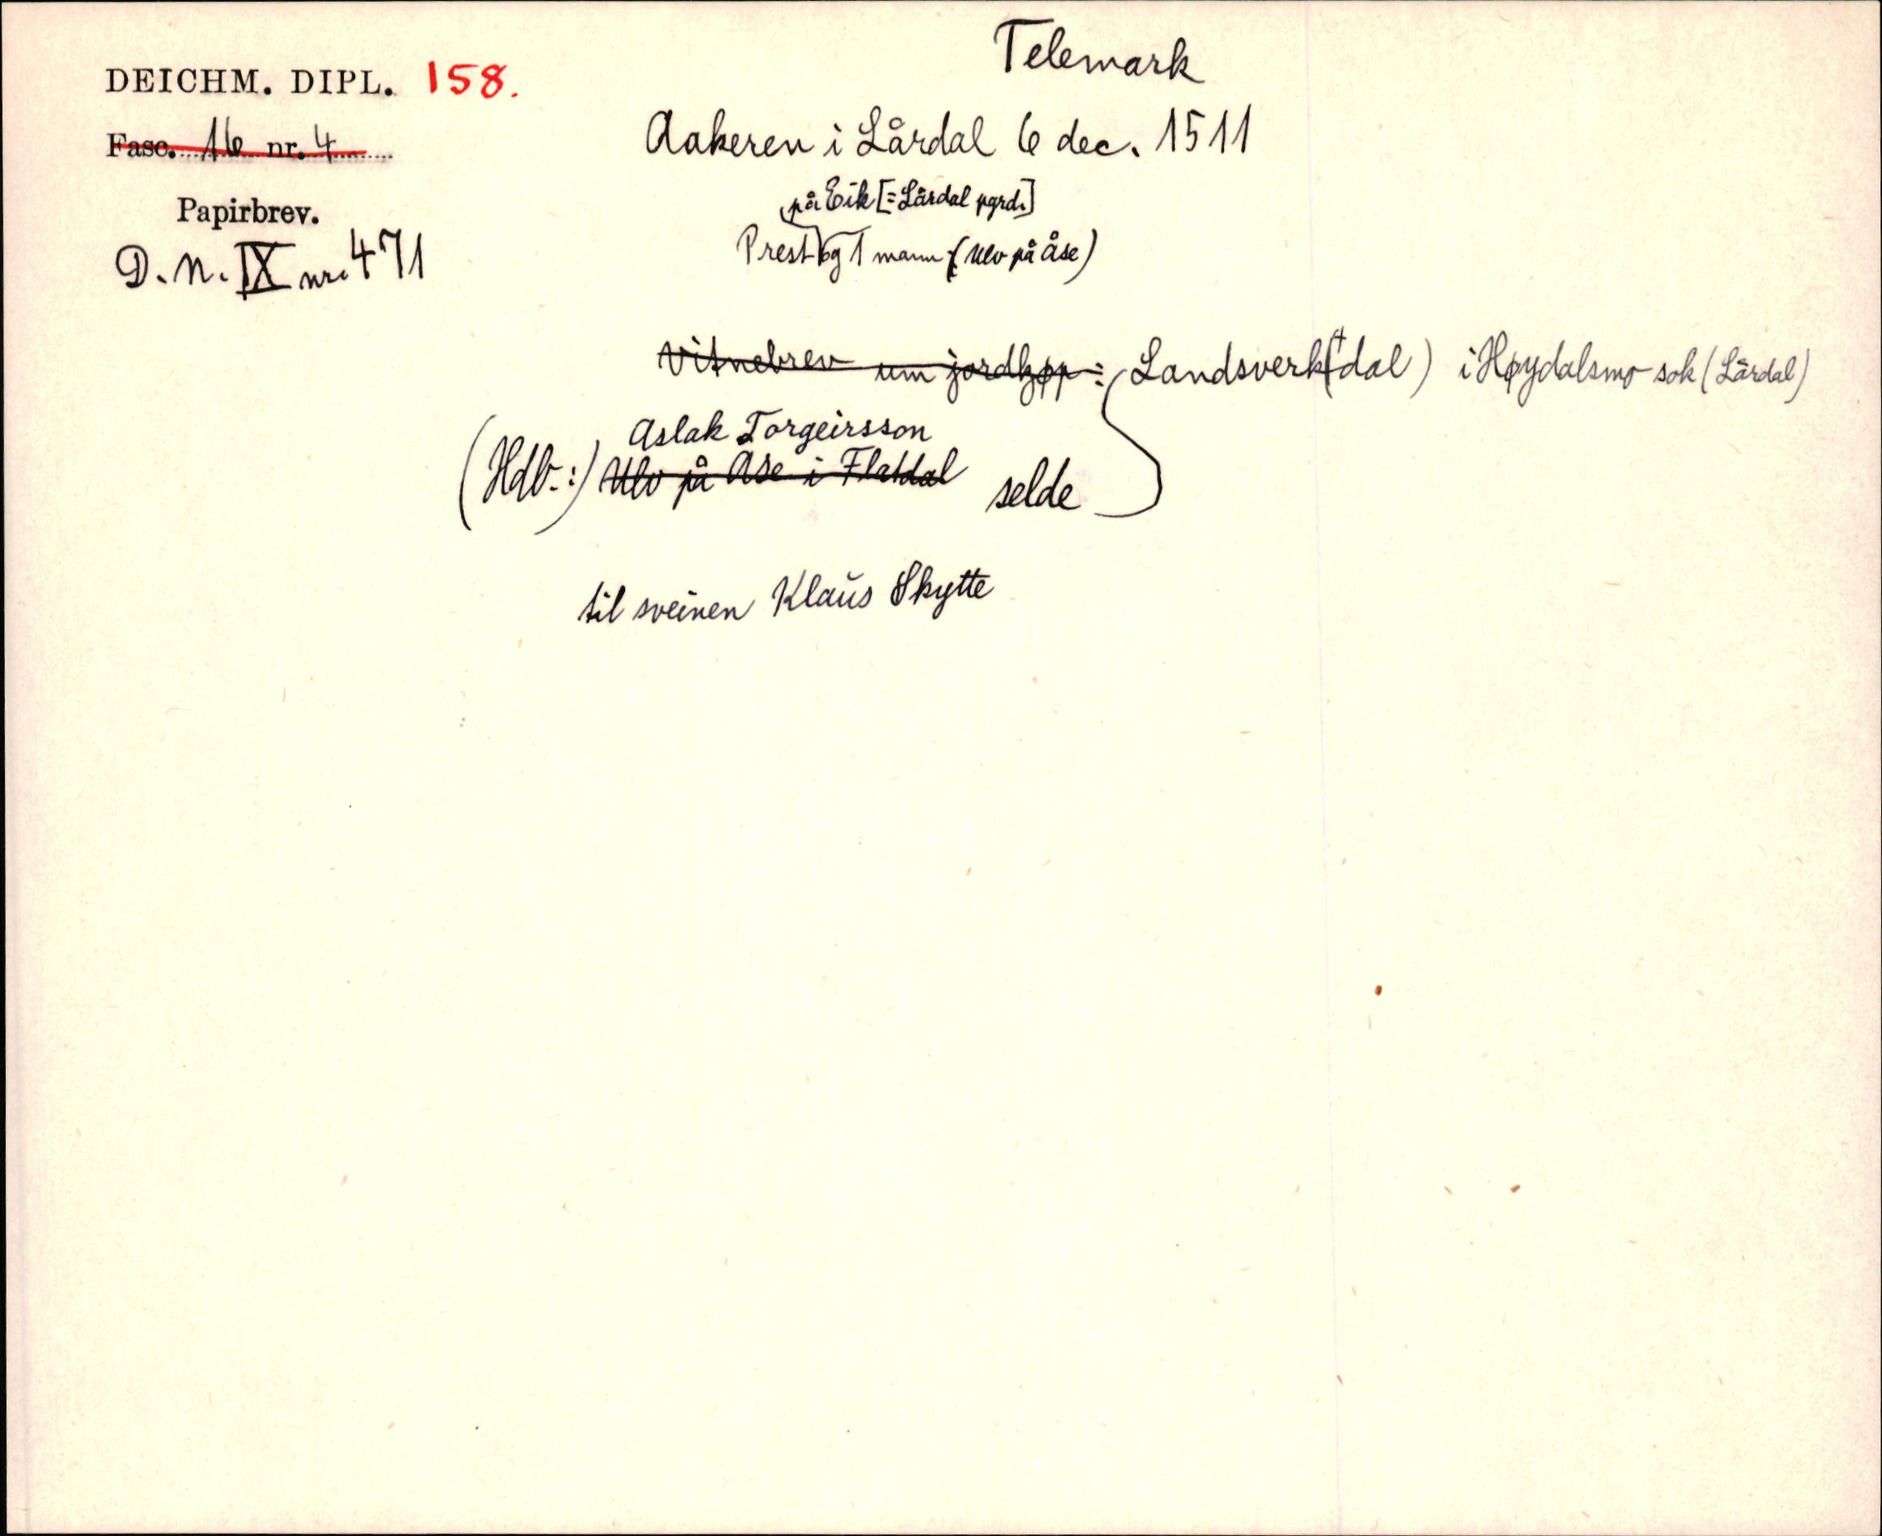 Telemark
DEICHM. DIPL. 158.
Aakeren i Lårdal 6 dec. 1511
Fasc. 16 nr. 4
på Eik [= Lårdal pgrd.]
Papirbrev.
Prest og 1 mann (Ulv på Åse)
D. N. IX nr. 471
Vitnebrev um jordkjøp: Landsverk (+dal) i Høydalsmo sok (Lårdal)
Aslak Torgeirsson
(Hdv.:) Ulv på Åse i Flatdal selde
til sveinen Klaus Skytte